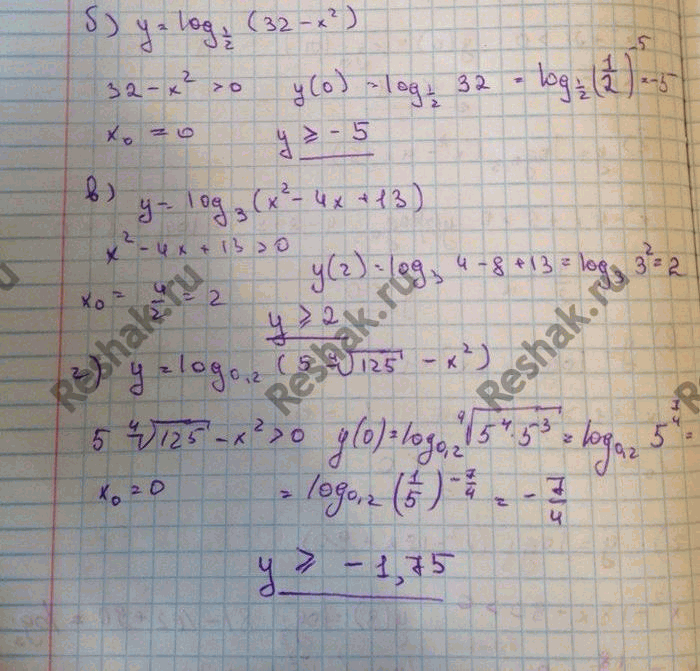 б) y = log_{1/2} (32 − x²)
32 − x² > 0   y(0) = log_{1/2} 32 = log_{1/2} (1/2)^{−5} = −5
x₀ = 0   y ⩾ −5
в) y = log₃ (x² − 4x + 13)
x² − 4x + 13 > 0
y(2) = log₃ 4 − 8 + 13 = log₃ 3² = 2
x₀ = 4/2 = 2
y ⩾ 2
г) y = log_{0,2} (5 ∜125 − x²)
5 ∜125 − x² > 0   y(0) = log_{0,2} ∜(5⁴·5³) = log_{0,2} 5^{7/4} =
x₀ = 0   = log_{0,2} (1/5)^{−7/4} = −7/4
y ⩾ −1,75
Reshak.ru
Reshak.ru
Reshak.ru